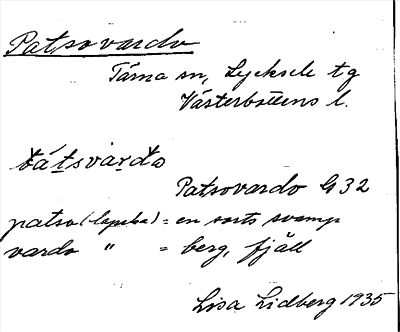 Patsovardo
Tärna sn, Lycksele tg
Västerbottens l.
bátsvar̮do
Patsovardo G 32
patso (lapska) = en sorts svamp
vardo " = berg, fjäll
Lisa Lidberg 1935